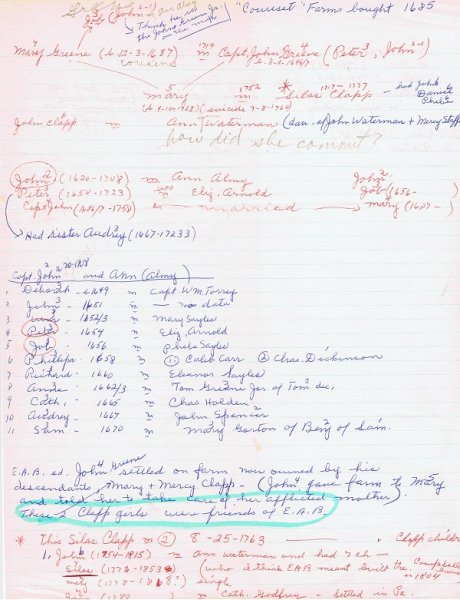 "Coweset" Farms bought 1685
Job (John 2-1)
Think he is
Mary Greene (b 12-3-1687) m 1719 Capt. John Greene (Peter 3, John 2-1)
cousins
Mary 5 m 1752 * Silas Clapp 1717-1777 - had John 6
Daniel
Phebe
(b 9-10-1723) (suicide 7-8-1760)
John Clapp m Ann Waterman (dau. of John Waterman + Mercy
how did she commit?
John 2 (1620-1708) m Ann Almy John 2
Peter 3 (1654-1723) m Eliz. Arnold Job 3 (1656-)
Capt John married Mary (1687-)
Had Sister Audrey (1667-17233)
Capt. John 2 and Ann (Almy)
1 Deborah - b 1649 m Capt Wm. Torrey
2 John 3 - 1651 m - no data
3 1652/3 m Mary Sayles
4 Peter 3 - 1654 m Eliz. Arnold
5 Job 3 - 1656 m Phebe Sayles
6 Phillippa - 1658 m (1) Caleb Carr (2) Chas. Dickinson
7 Richard - 1660 m Eleanor Sayles
8 Anne - 1662/3 m Tom Greene Jr of Tom 2 dec.
9 Cath. - 1665 m Chas Holden 2
10 Audrey - 1667 m John Spencer
11 Sam - 1670 m Mary Gorton of Benj 2 of Sam.
E.A.B. sd. John 4 Greene settled on farm now owned by his
descendants, Mary + Mercy Clapp - (John 4 gave farm to Mary 5
and told her to take care of her afflicted mother)
These 2 Clapp girls were friends of E.A.B.
* This Silas Clapp m (2) 8-25-1763 Clapp children
1. Job 6 (1754-1815) m Ann Waterman and had 7 ch -
Silas (1776-1853) (who I think EAB meant built the Campbell
house
in 1804
Mary (1778-186?) single
m Cath. Godfrey - settled in Pa.